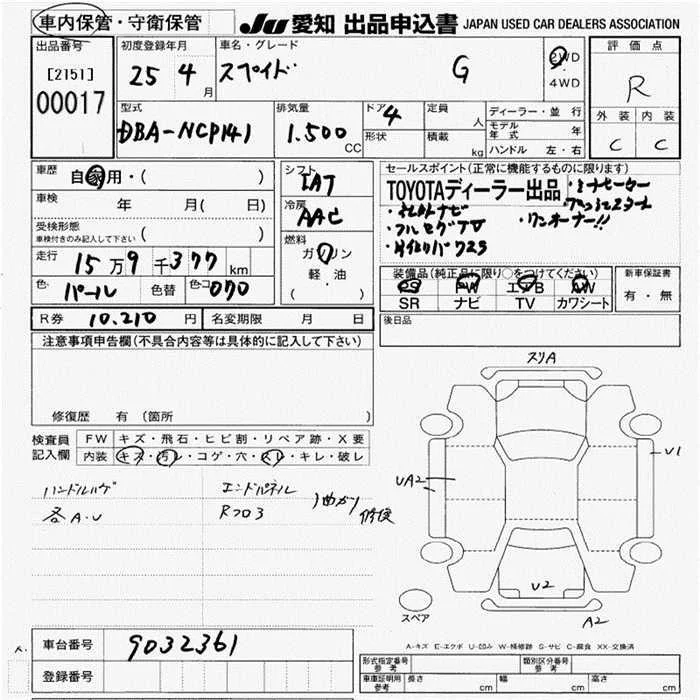 車内保管・守衛保管
JU 愛知 出品申込書 JAPAN USED CAR DEALERS ASSOCIATION
出品番号
[2151]
00017
初度登録年月
25 4 月
車名・グレード
スペイド G
2WD
・
4WD
評価点
R
外装 内装
C C
型式
DBA-NCP141
排気量
1.500 CC
ドア 4
形状
定員 人
積載 kg
ディーラー・並行
モデル年式 年
ハンドル 左・右
車歴 自家用・( )
車検 年 月( 日)
受検形態
車検付きのみ記入して下さい ( )
走行 15万9千377 km
色 パール 色替 色コ 070
シフト
IAT
冷房
AAC
燃料
ガソリン
軽・油
( )
セールスポイント(正常に機能するものに限ります)
TOYOTAディーラー出品
・社外ナビ
・フルセグTV
・ワンオーナー!!
装備品(純正品に限り○をつけてください)
PS PW エアB AW
SR ナビ TV カワシート
新車保証書
有・無
R券 10.210 円 名変期限 月 日
後日品
注意事項申告欄(不具合内容等は具体的に記入して下さい)
修復歴 有 (箇所 )
検査員
記入欄
FW キズ・飛石・ヒビ割・リペア跡・X要
内装 キズ・汚レ・コゲ・穴・スレ・キレ・破レ
ハンドルハゲ
各A.U
エンドパネル
Rフロア
曲がり
修復
スリA
U1
UA2
U2
A2
スペア
A-キズ E-エクボ U-凹み W-補修跡 S-サビ C-腐食 XX-交換済
車台番号 9032361
登録番号
型式指定番号
参考
類別区分番号
参考
車庫証明用
参考
長さ cm 幅 cm 高さ cm